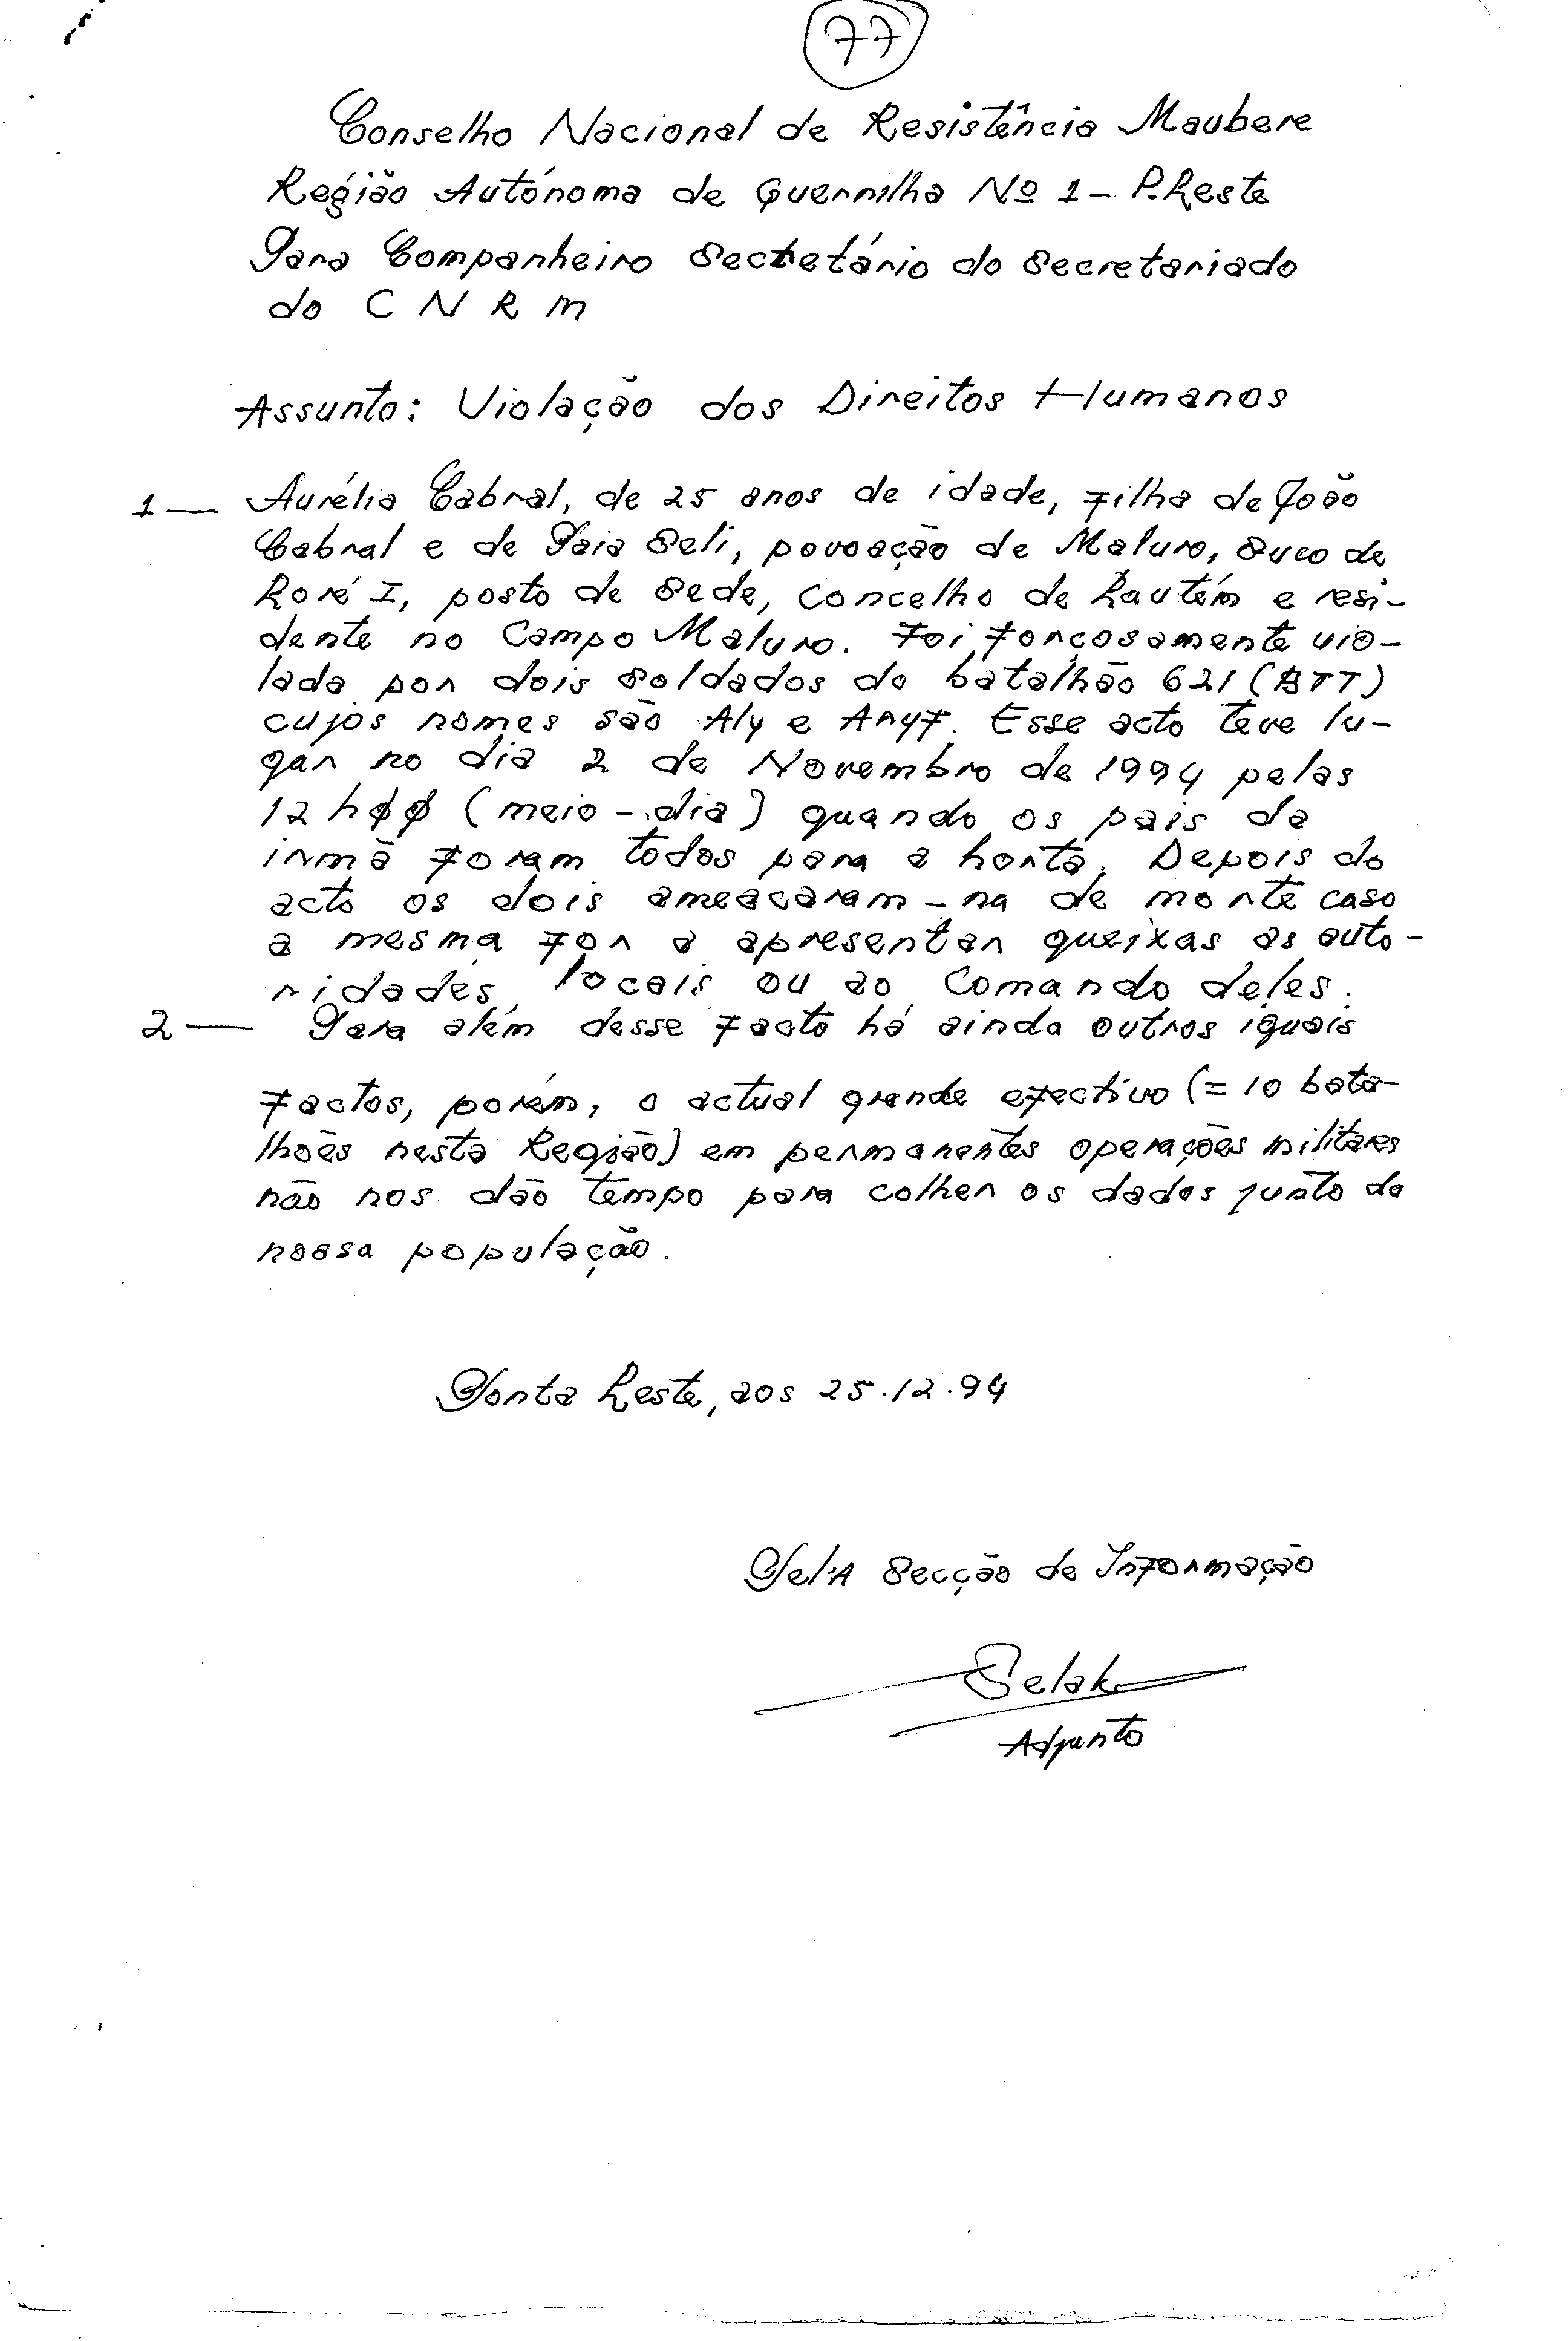 77
Conselho Nacional de Resistência Maubere
Região Autónoma de Guerrilha Nº 1 - P. Leste
Para Companheiro Secretário do Secretariado
do C N R M
Assunto: Violação dos Direitos Humanos
1 — Aurélia Cabral, de 25 anos de idade, filha de João
Cabral e de Paia Seli, povoação de Maluro, Suco de
Loré I, posto de Sede, concelho de Lautém e resi-
dente no Campo Maluro. Foi forçosamente vio-
lada por dois soldados do batalhão 621 (BTT)
cujos nomes são Aly e Aryf. Esse acto teve lu-
gar no dia 2 de Novembro de 1994 pelas
12 h00 (meio-dia) quando os pais da
irmã foram todos para a horta. Depois do
acto os dois ameaçaram-na de morte caso
a mesma for a apresentar queixas as auto-
ridades locais ou ao Comando deles.
2 — Para além desse facto há ainda outros iguais
factos, porém, o actual grande efectivo (= 10 bata-
lhões nesta Região) em permanentes operações militares
não nos dão tempo para colher os dados junto da
nossa população.
Ponta Leste, aos 25.12.94
Pel'A Secção de Informação
Selak
Adjunto